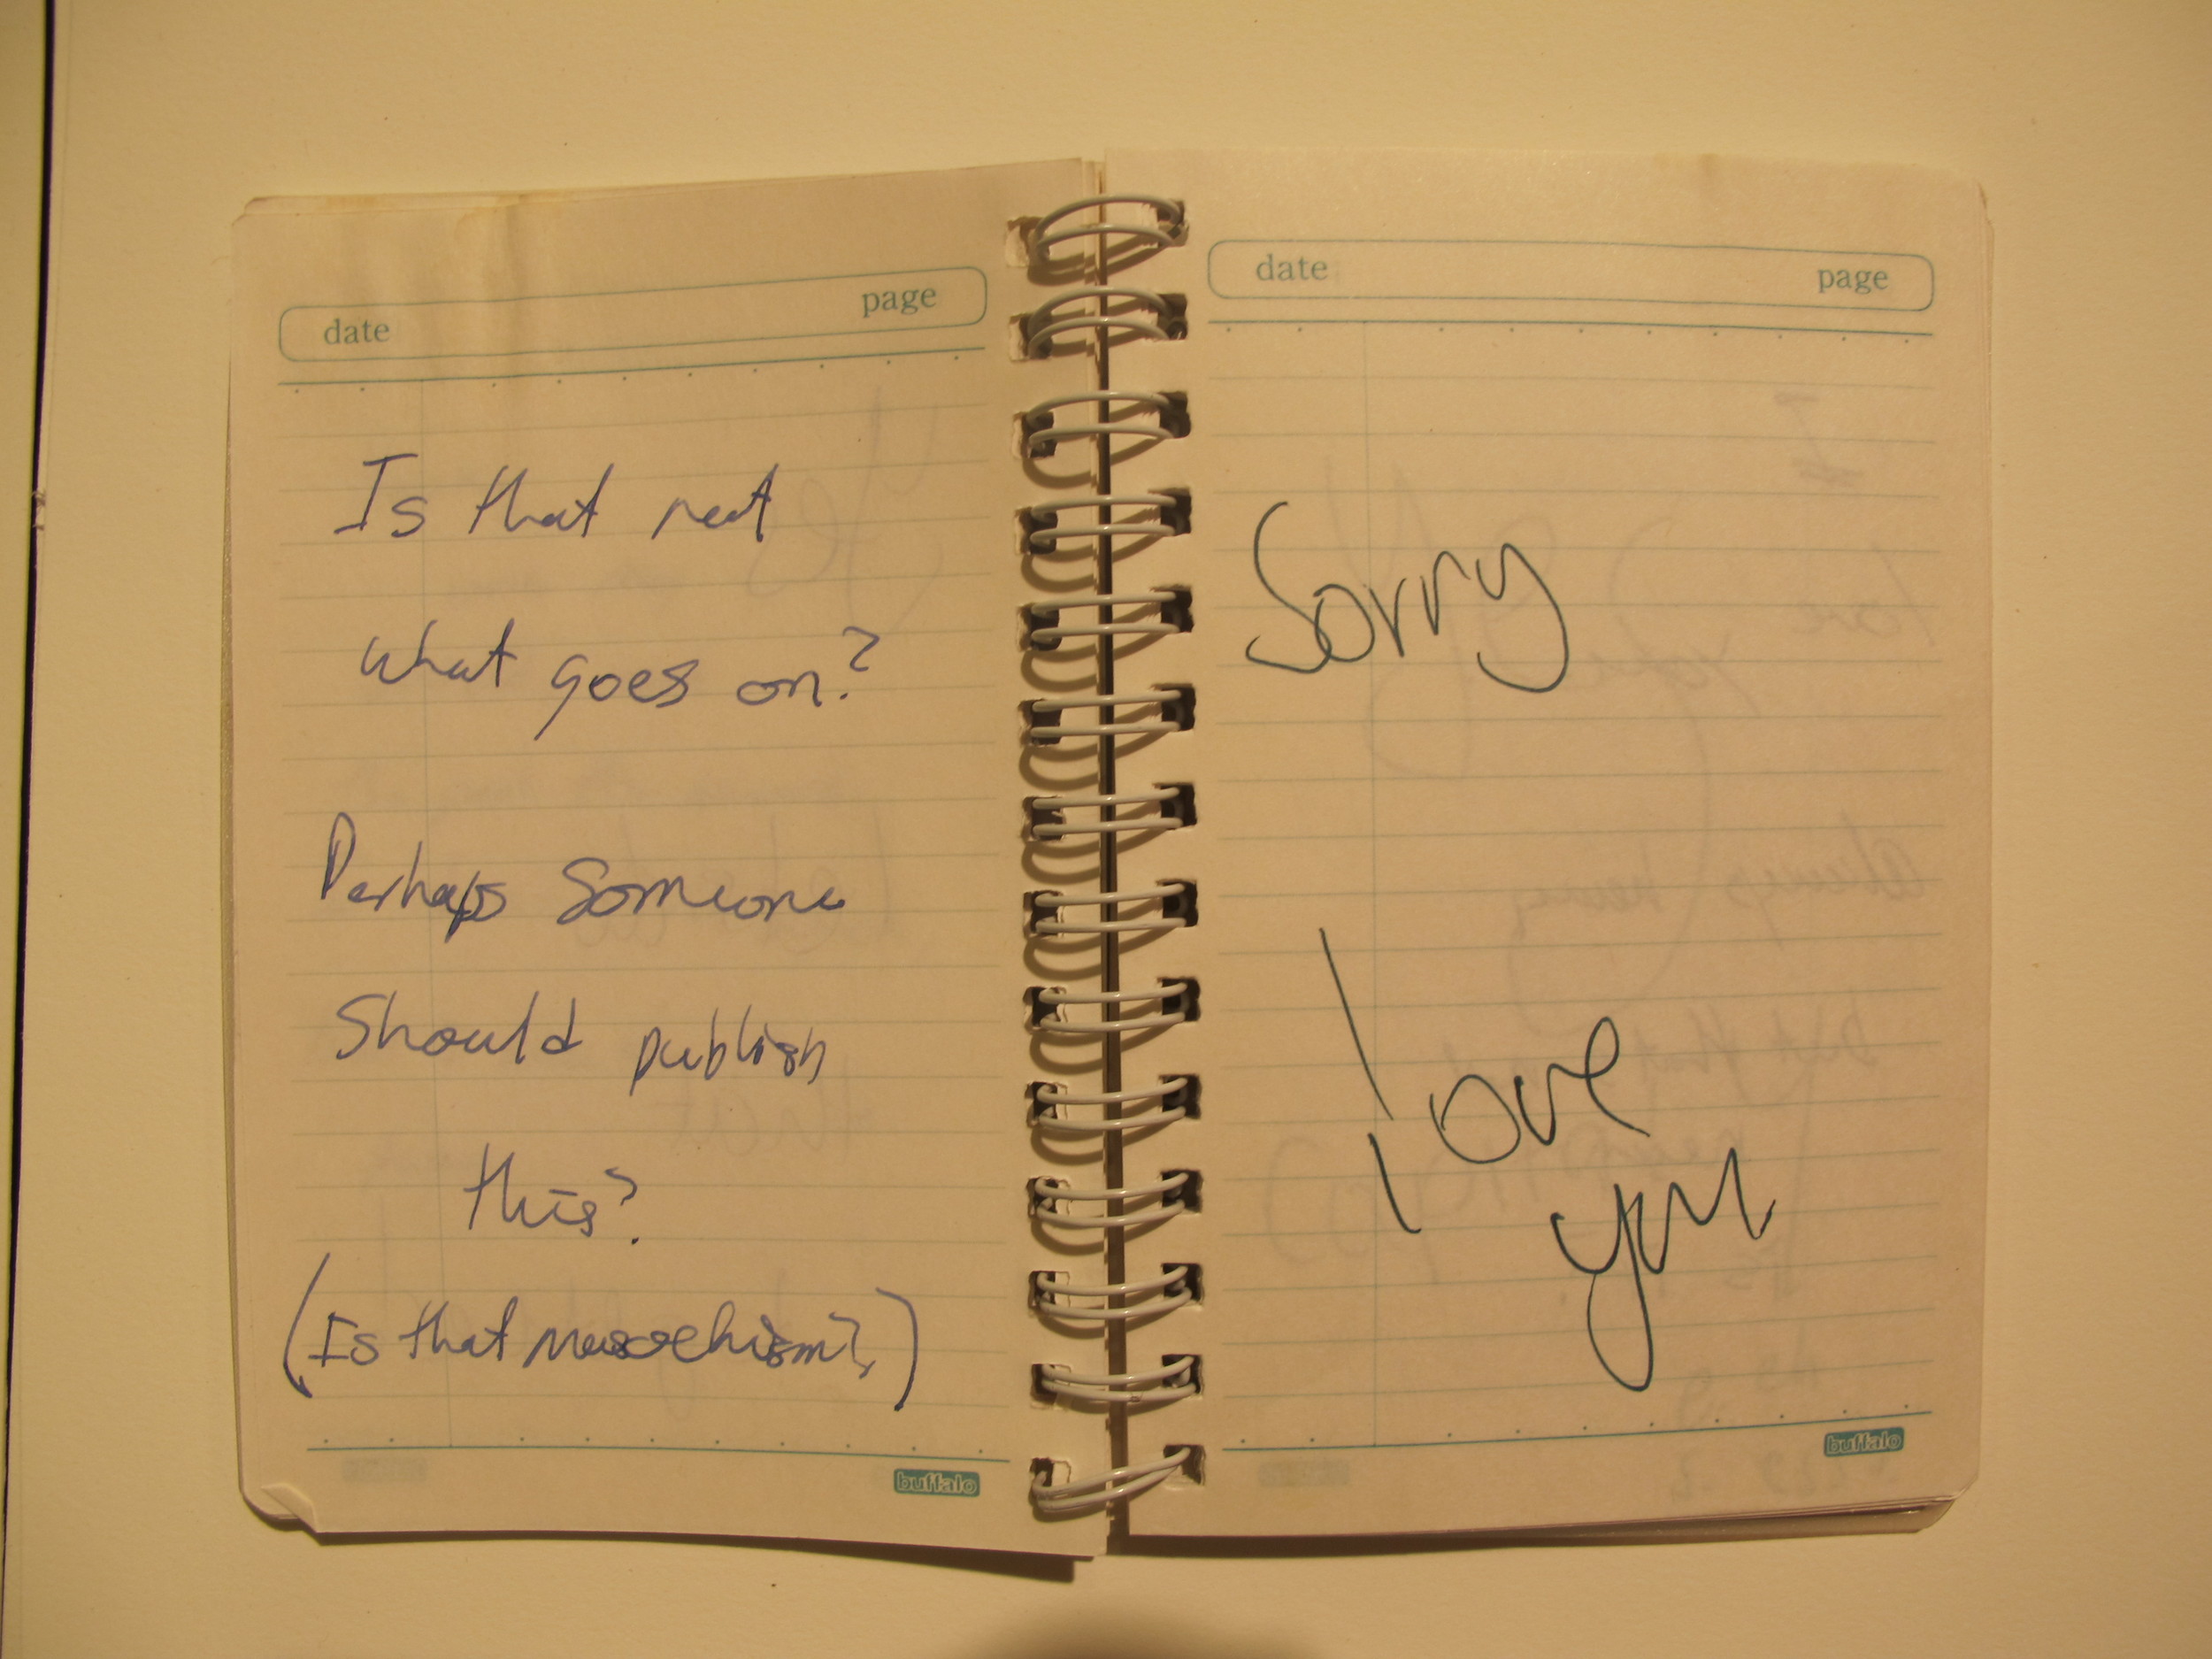 date page
Is that not
what goes on?
Perhaps Someone
Should publish
this?
(Is that masochism?)
buffalo
date page
Sorry
love
you
buffalo